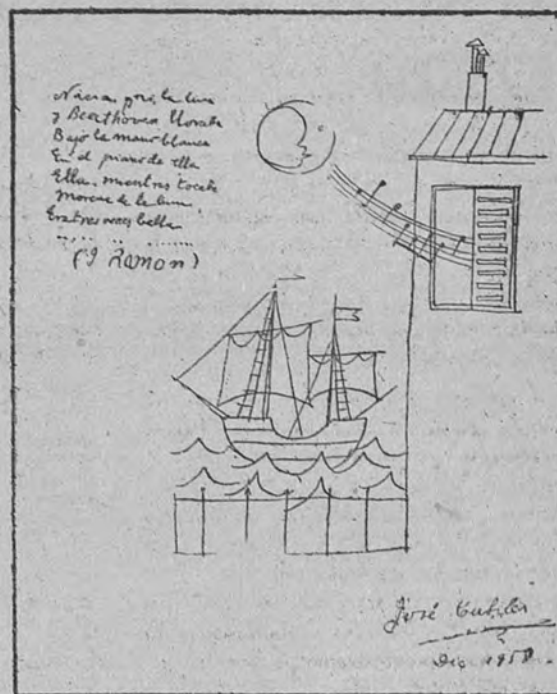 y Beethoven lloraba
Bajo la mano blanca
En el piano de ella
Ella. mientras tocaba
Morena de la luna
Era tres veces bella
(J Ramon)
José
Dic 1950